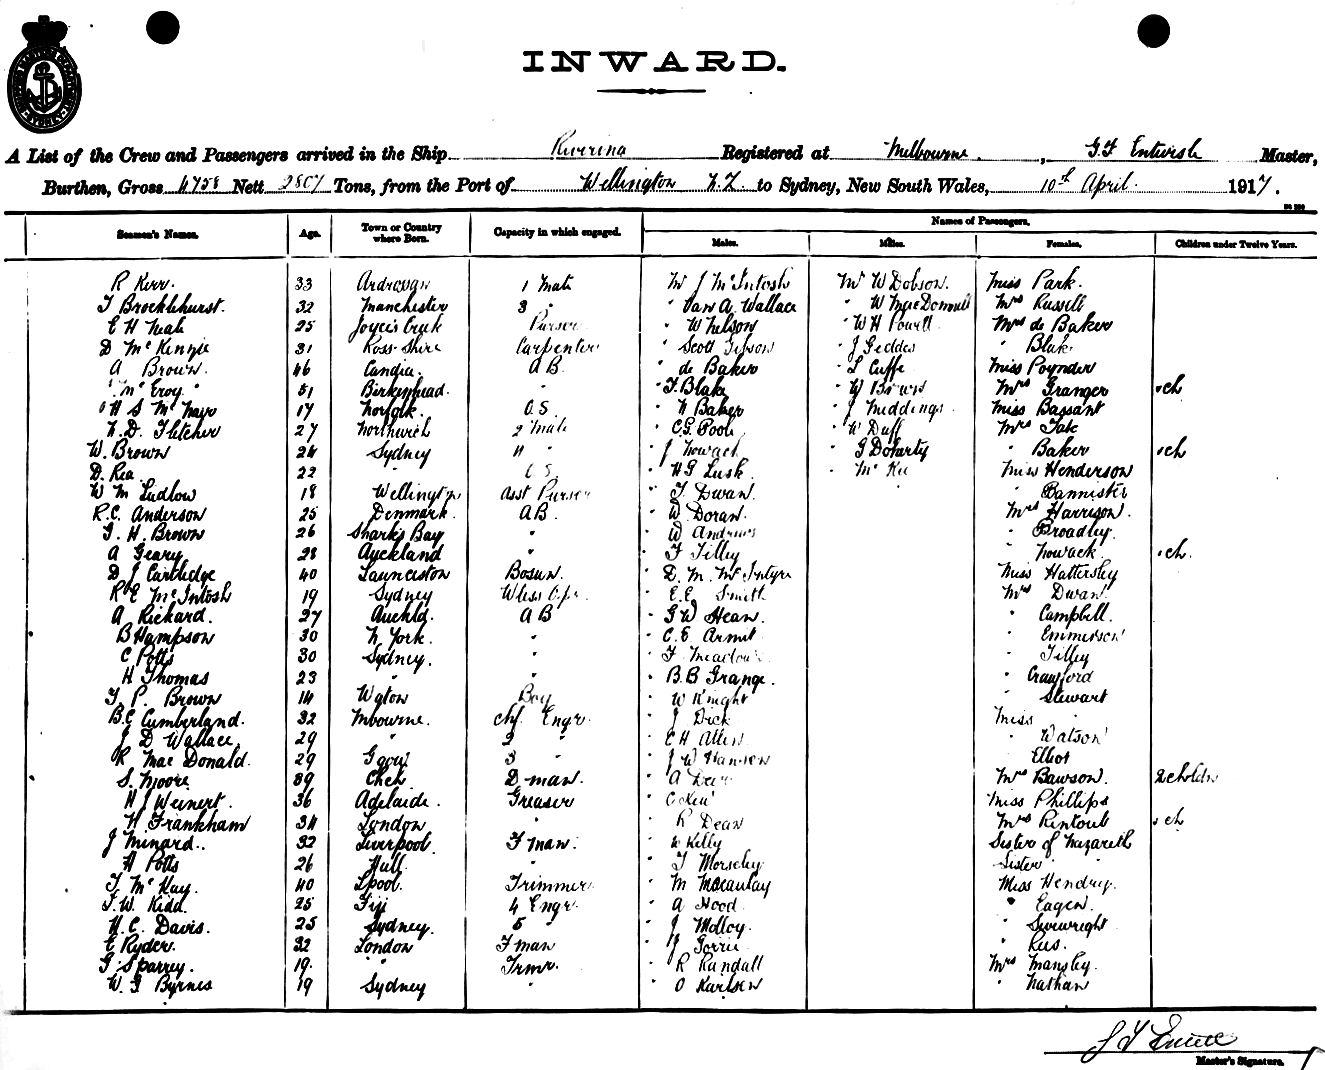 INWARD.
A List of the Crew and Passengers arrived in the Ship Riverina Registered at Melbourne, G.F Entwisle Master,
Burthen, Gross 4758 Nett 2807 Tons, from the Port of Wellington N.Z to Sydney, New South Wales, 10th April. 1917.
Names of Passengers.
Seamen's Names. Age. Town or Country where Born. Capacity in which engaged. Males. Males. Females. Children under Twelve Years.
R Kerr. 33 Ardrossan 1 Mate Mr J McIntosh Mr W Dobson. Miss Park.
T Brocklehurst. 32 Manchester 3 " " Van A. Wallace " W MacDonnell Mrs Russell
E H Male 25 Joyces Creek Purser " W Nelson " W H Powell Mrs de Baker
D McKenzie 31 Ross-shire Carpenter " Scott Gibson " J Geddes " Blake
A Brown. 46 Candia A B. " de Baker " L Cuffe Miss Poynder
" McEroy " 51 Birkenhead. " " F. Blake " W Brown Mrs Granger 1 ch
H S McNayr 17 Norfolk. O.S. " N Baker " J Middings Miss Bassant
N. D. Fletcher 27 Northwich 2 Mate " C.G. Poole " W Duff Mrs Tak
W. Brown 24 Sydney 4 " " J Nowack " G Doharty " Baker 1 ch
D. Rea 22 " O S. " H G Lusk " McKee Miss Henderson
W M Ludlow 18 Wellington Asst Purser " T Dwan. " Bannister
R.C. Anderson 25 Denmark. A B. " W Doran. Mrs Harrison.
G. H. Brown 26 Sharks Bay " " W Andrews " Broadley.
A Geary 28 Auckland " " F Tilley " Nowack. 1 ch.
D J Cartledge 40 Launceston Bosun. " D. M. McIntyre Miss Hattersley
R E McIntosh 19 Sydney Wless Opr. " E.E. Smith Mrs Dwan.
A Rickard. 27 Auckld. A B " G W Hean. " Campbell.
B Hampson 30 N York. " " C. E Armit " Emmerson
C Potts 30 Sydney. " " F Meadows " Tilley
H Thomas 23 " " " B. B Grange. " Crawford
T P. Brown 14 Wgton Boy " W Knight " Stewart
B.C Cumberland. 32 Mbourne. Chf. Engr. " J Dick Miss "
J D Wallace 29 " 2 " " E H Allen " Watson
R Mac Donald. 29 3 " " J W Hansen " Elliot
S. Moore 39 D man " A Mrs Bawson. 2 childn
H J Weinert. 36 Adelaide. Greaser " C Miss Phillips
H Frankham 34 London " " R Dean Mrs Rintoul 1 ch
J Minard. 32 Liverpool. F man. " W Kelly Sister of Nazareth
H Potts 26 Hull. " " T Morseley Sister "
T. McKay. 40 Lpool. Trimmer. " M Macaulay Miss Hendry.
F. W. Kidd. 25 Fiji 4 Engr. " A Hood. " Eagen.
H. C. Davis. 25 Sydney. 5 " " J Molloy. " Sivewright
E Ryder. 32 London F man " J Gorrie " Rus.
G Sparrey. 19. " Trmr. " R Randall Mrs Mansley.
W. G Byrnes 19 Sydney " " O Karlsen " Nathan
Master's Signature.